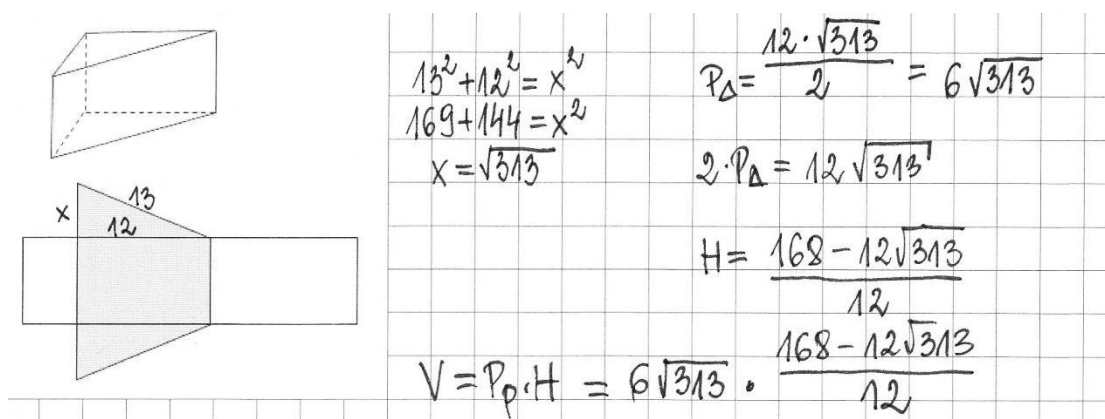 x
13
12
13² + 12² = x²
169 + 144 = x²
x = √313
P△ = 12 · √313 / 2 = 6√313
2 · P△ = 12√313
H = 168 − 12√313 / 12
V = Pp · H = 6√313 · 168 − 12√313 / 12